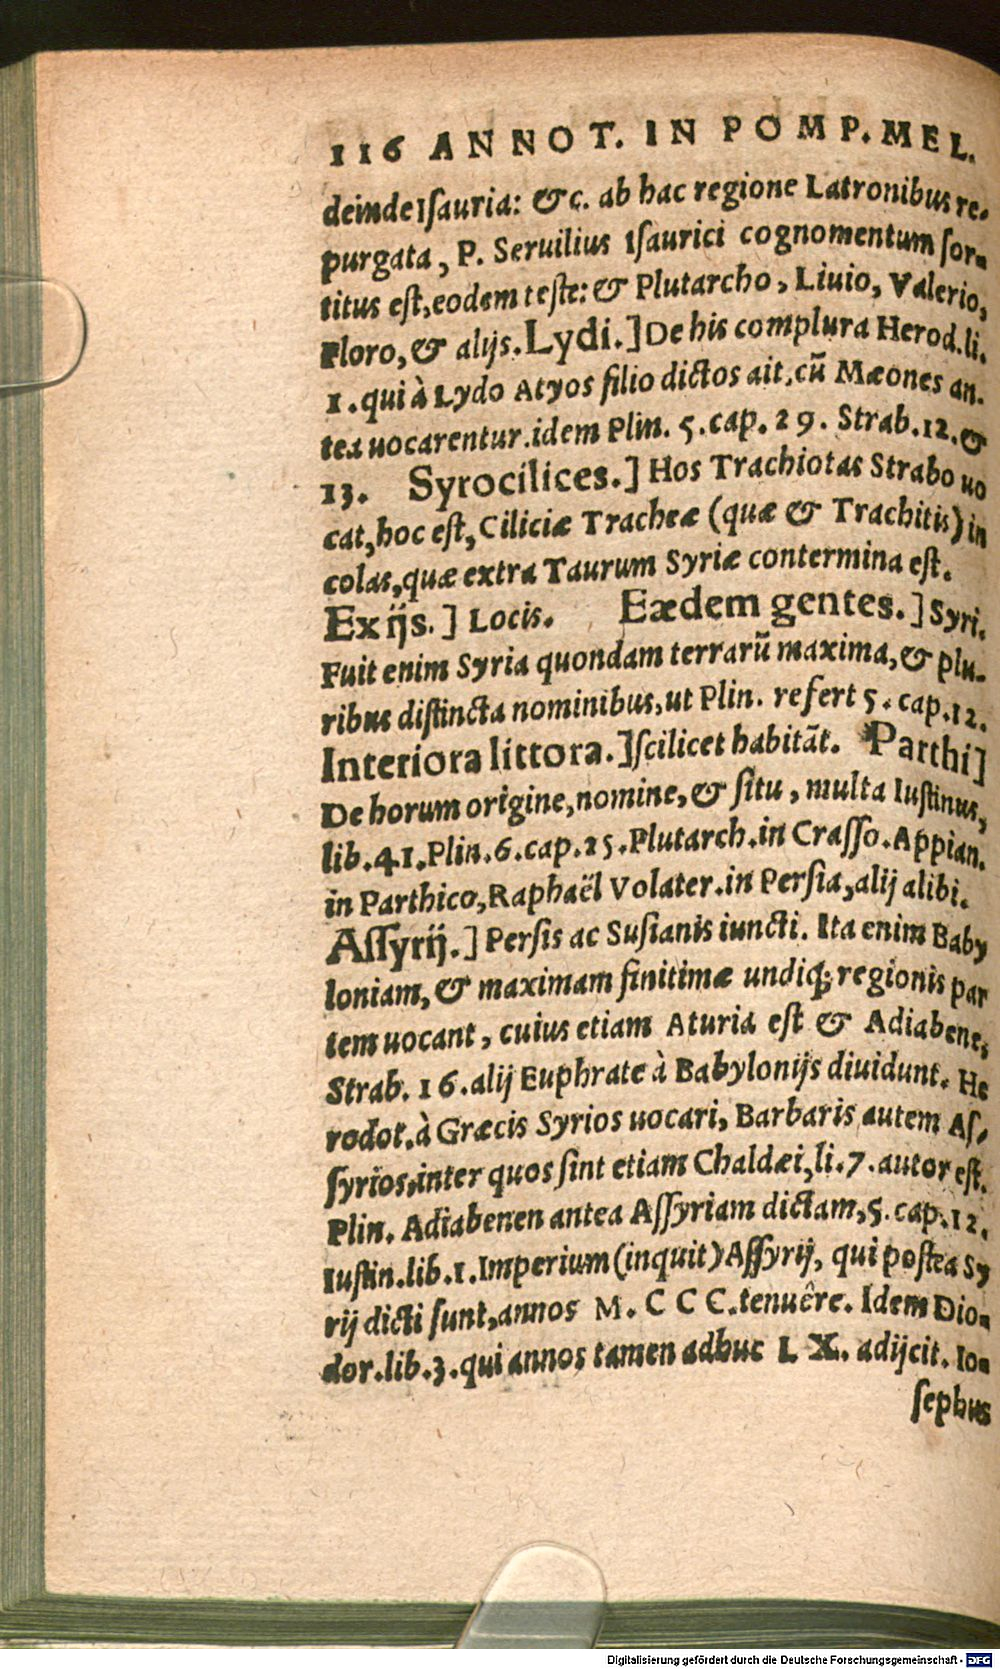 116 ANNOT. IN POMP. MEL.
deinde Iſauria: &c. ab hac regione Latronibus re-
purgata, P. Seruilius Iſaurici cognomentum ſor-
titus eſt, eodem teſte: & Plutarcho, Liuio, Valerio,
Floro, & alijs. Lydi.] De his complura Herod. li.
1. qui à Lydo Atyos filio dictos ait, cũ Mæones an-
tea uocarentur. idem Plin. 5. cap. 29. Strab. 12. &
13. Syrocilices.] Hos Trachiotas Strabo uo
cat, hoc eſt, Ciliciæ Tracheæ (quæ & Trachitis) in
colas, quæ extra Taurum Syriæ contermina eſt.
Ex ijs.] Locis. Eædem gentes.] Syri.
Fuit enim Syria quondam terrarũ maxima, & plu-
ribus diſtincta nominibus, ut Plin. refert 5. cap. 12.
Interiora littora.] ſcilicet habitãt. Parthi]
De horum origine, nomine, & ſitu, multa Iuſtinus,
lib. 41. Plin. 6. cap. 25. Plutarch. in Craſſo. Appian.
in Parthico, Raphaël Volater. in Perſia, alij alibi.
Aſſyrij.] Perſis ac Suſianis iuncti. Ita enim Baby
loniam, & maximam finitimæ undiq; regionis par
tem uocant, cuius etiam Aturia eſt & Adiabene,
Strab. 16. alij Euphrate à Babylonijs diuidunt. He
rodot. à Græcis Syrios uocari, Barbaris autem Aſ-
ſyrios, inter quos ſint etiam Chaldæi, li. 7. autor eſt.
Plin. Adiabenen antea Aſſyriam dictam, 5. cap. 12.
Iuſtin. lib. 1. Imperium (inquit) Aſſyrij, qui poſtea Sy
rij dicti ſunt, annos M. CCC. tenuêre. Idem Dio-
dor. lib. 3. qui annos tamen adhuc LX. adijcit. Io-
ſephus
Digitalisierung gefördert durch die Deutsche Forschungsgemeinschaft - DFG